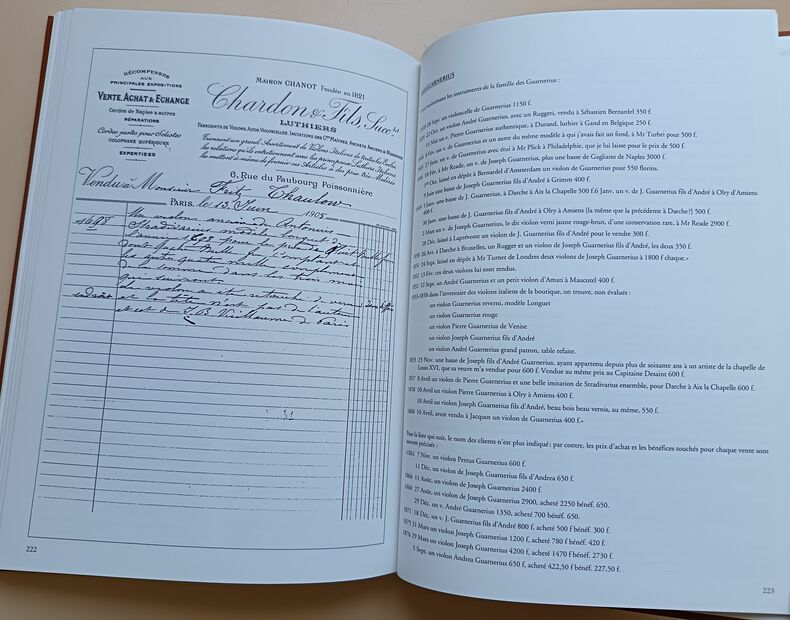 RÉCOMPENSES
AUX
PRINCIPALES EXPOSITIONS
VENTE, ACHAT & ECHANGE
Cordes de Naples & autres
RÉPARATIONS
Cordes justes pour Solistes
COLOPHANE SUPÉRIEURE
EXPERTISES
MAISON CHANOT Fondée en 1821
Chardon & Fils Succ.rs
LUTHIERS
FABRICANTS DE VIOLONS, ALTOS, VIOLONCELLES, IMITATIONS DES Ces MAITRES, ARCHETS ANCIENS & MODERNES
Tiennent un grand Assortiment de Violons Italiens de toutes les Ecoles
les relations qu'ils entretiennent avec les principaux Luthiers Italiens
les mettent à même de fournir ces Articles à des prix très Réduits
6, Rue du Faubourg Poissonnière
Vendu à Monsieur Fritz Thaulow
PARIS, le 13 Juin 1905
Un violon ancien de Antonius
Stradivarius modèle longuet de
l'année 1695 pour le prix de
dont quatre mille f au comptant et
les autres quatre mille complément
de la somme dans les trois mois
qui suivront.
Le violon a été retouché de vernis
et la tête n'est pas de l'auteur
est de J.B. Vuillaume de Paris
222
GUARNERIUS
maintenant les instruments de la famille des Guarnerius :
Sept. un violoncelle de Guarnerius 1150 f.
Oct. un violon André Guarnerius, avec un Ruggeri, vendu à Sébastien Bernardel 350 f.
un v. Pierre Guarnerius authentique, à Durand, luthier à Gand en Belgique 250 f.
Fév. un v. de Guarnerius et un autre du même modèle à qui j'avais fait un fond, à Mr Turbri pour 500 f.
un v. de Guarnerius avec étui à Mr Plick à Philadelphie, que je lui laisse pour le prix de 500 f.
Fév. à Mr Reade, un v. de Joseph Guarnerius, plus une basse de Gagliano de Naples 3000 f.
Oct. laissé en dépôt à Bernardel d'Amsterdam un violon de Guarnerius pour 550 florins.
9 Juin une basse de Joseph Guarnerius fils d'André à Grimm 400 f.
5 Janv. une basse de J. Guarnerius, à Darche à Aix la Chapelle 500 f.6 Janv. un v. de J. Guarnerius fils d'André à Olry d'Amiens
400 f.
30 Janv. une basse de J. Guarnerius fils d'André à Olry à Amiens [la même que la précédente à Darche?] 500 f.
2 Mars un v. de Joseph Guarnerius, le dit violon verni jaune rouge-brun, d'une conservation rare, à Mr Reade 2900 f.
28 Déc. laissé à Laprévotte un violon de J. Guarnerius fils d'André pour le vendre 300 f.
26 Avr. à Darche à Bruxelles, un Rugger et un violon de Joseph Guarnerius fils d'André, les deux 350 f.
24 Sept. laissé en dépôt à Mr Turner de Londres deux violons de Joseph Guarnerius à 1800 f chaque.»
13 Fév. ces deux violons lui sont rendus.
12 Sept. un André Guarnerius et un petit violon d'Amati à Maucotel 400 f.
-1858 dans l'inventaire des violons italiens de la boutique, on trouve, non évalués :
un violon Guarnerius reverni, modèle Longuet
un violon Guarnerius rouge
un violon Pierre Guarnerius de Venise
un violon Joseph Guarnerius fils d'André
un violon André Guarnerius grand patron, table refaite.
1855 23 Nov. une basse de Joseph fils d'André Guarnerius, ayant appartenu depuis plus de soixante ans à un artiste de la chapelle de
Louis XVI, que sa veuve m'a vendue pour 600 f. Vendue au même prix au Capitaine Desaint 600 f.
1857 8 Avril un violon de Pierre Guarnerius et une belle imitation de Stradivarius ensemble, pour Darche à Aix la Chapelle 600 f.
1858 10 Avril un violon Pierre Guarnerius à Olry à Amiens 400 f.
10 Avril un violon Joseph Guarnerius fils d'André, beau bois beau vernis, au même, 550 f.
1860 10 Avril, avoir vendu à Jacquot un violon de Guarnerius 400 f.»
Pour la liste que suit, le nom des clients n'est plus indiqué; par contre, les prix d'achat et les bénéfices touchés pour chaque vente sont
souvent précisés :
«1861 7 Nov. un violon Petrus Guarnerius 600 f.
11 Déc. un violon de Joseph Guarnerius fils d'Andrea 650 f.
1866 11 Août, un violon de Joseph Guarnerius 2400 f.
1868 27 Août, un violon de Joseph Guarnerius 2900, acheté 2250 bénéf. 650.
29 Déc. un v. André Guarnerius 1350, acheté 700 bénéf. 650.
1871 18 Déc. un v. J. Guarnerius fils d'André 800 f, acheté 500 f bénéf. 300 f.
1875 31 Mars un violon Joseph Guarnerius 1200 f, acheté 780 f bénéf. 420 f.
1876 29 Mars un violon Joseph Guarnerius 4200 f, acheté 1470 f bénéf. 2730 f.
5 Sept. un violon Andrea Guarnerius 650 f, acheté 422,50 f bénéf. 227,50 f.
223